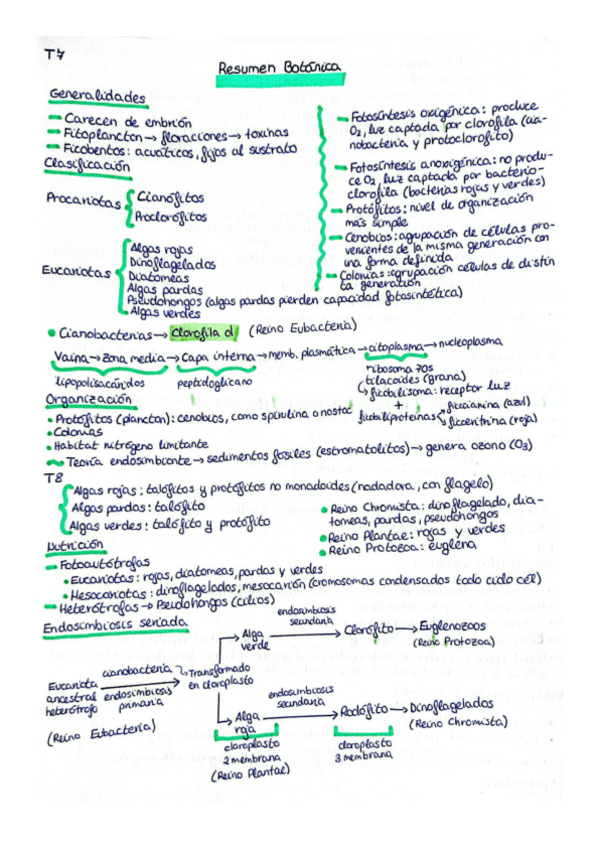 T7
Resumen Botánica
Generalidades
Carecen de embrión
Fitoplancton → floraciones → toxinas
Ficobentos: acuáticos, fijos al sustrato
Clasificación
Procariotas
Cianófitos
Proclorófitos
Eucariotas
Algas rojas
Dinoflagelados
Diatomeas
Algas pardas
Pseudohongos (algas pardas pierden capacidad fotosintética)
Algas verdes
Fotosíntesis oxigénica: produce
O₂, luz captada por clorofila (cia-
nobacteria y protoclorofito)
Fotosíntesis anoxigénica: no produ-
ce O₂, luz captada por bacterio-
clorofila (bacterias rojas y verdes)
Protófitos: nivel de organización
más simple
Cenobios: agrupación de células pro-
venientes de la misma generación con
una forma definida
Colonias: agrupación células de distin
ta generación
Cianobacterias → Clorofila d (Reino Eubacteria)
Vaina → zona media → Capa interna → memb. plasmática → citoplasma → nucleoplasma
lipopolisacáridos
peptidoglicano
ribosoma 70s
tilacoides (grana)
↳ ficobilisoma: receptor luz
+
ficobiliproteínas
ficocianina (azul)
ficoeritrina (roja)
Organización
Protófitos (plancton): cenobios, como spirulina o nostoc
Colonias
Habitat nitrógeno limitante
Teoría endosimbionte → sedimentos fosiles (estromatolitos) → genera ozono (O₃)
T8
Algas rojas: talófitos y protófitos no monadoides (nadadora, con flagelo)
Algas pardas: talófito
Algas verdes: talófito y protófito
Reino Chromista: dinoflagelado, dia-
tomeas, pardas, pseudohongos
Reino Plantae: rojas y verdes
Reino Protozoa: euglena
Nutrición
Fotoautótrofas
Eucariotas: rojas, diatomeas, pardas y verdes
Mesocariotas: dinoflagelados, mesocarión (cromosomas condensados todo ciclo cél)
Heterótrofas → Pseudohongos (cilios)
Endosimbiosis seriada
Eucariota
ancestral
heterótrofo
(Reino Eubacteria)
cianobacteria
endosimbiosis
primaria
Transformado
en cloroplasto
Alga
verde
endosimbiosis
secundaria
Clorófito → Euglenozoos
(Reino Protozoa)
Alga
roja
endosimbiosis
secundaria
Rodófito → Dinoflagelados
(Reino Chromista)
cloroplasto
2 membrana
(Reino Plantae)
cloroplasto
3 membrana